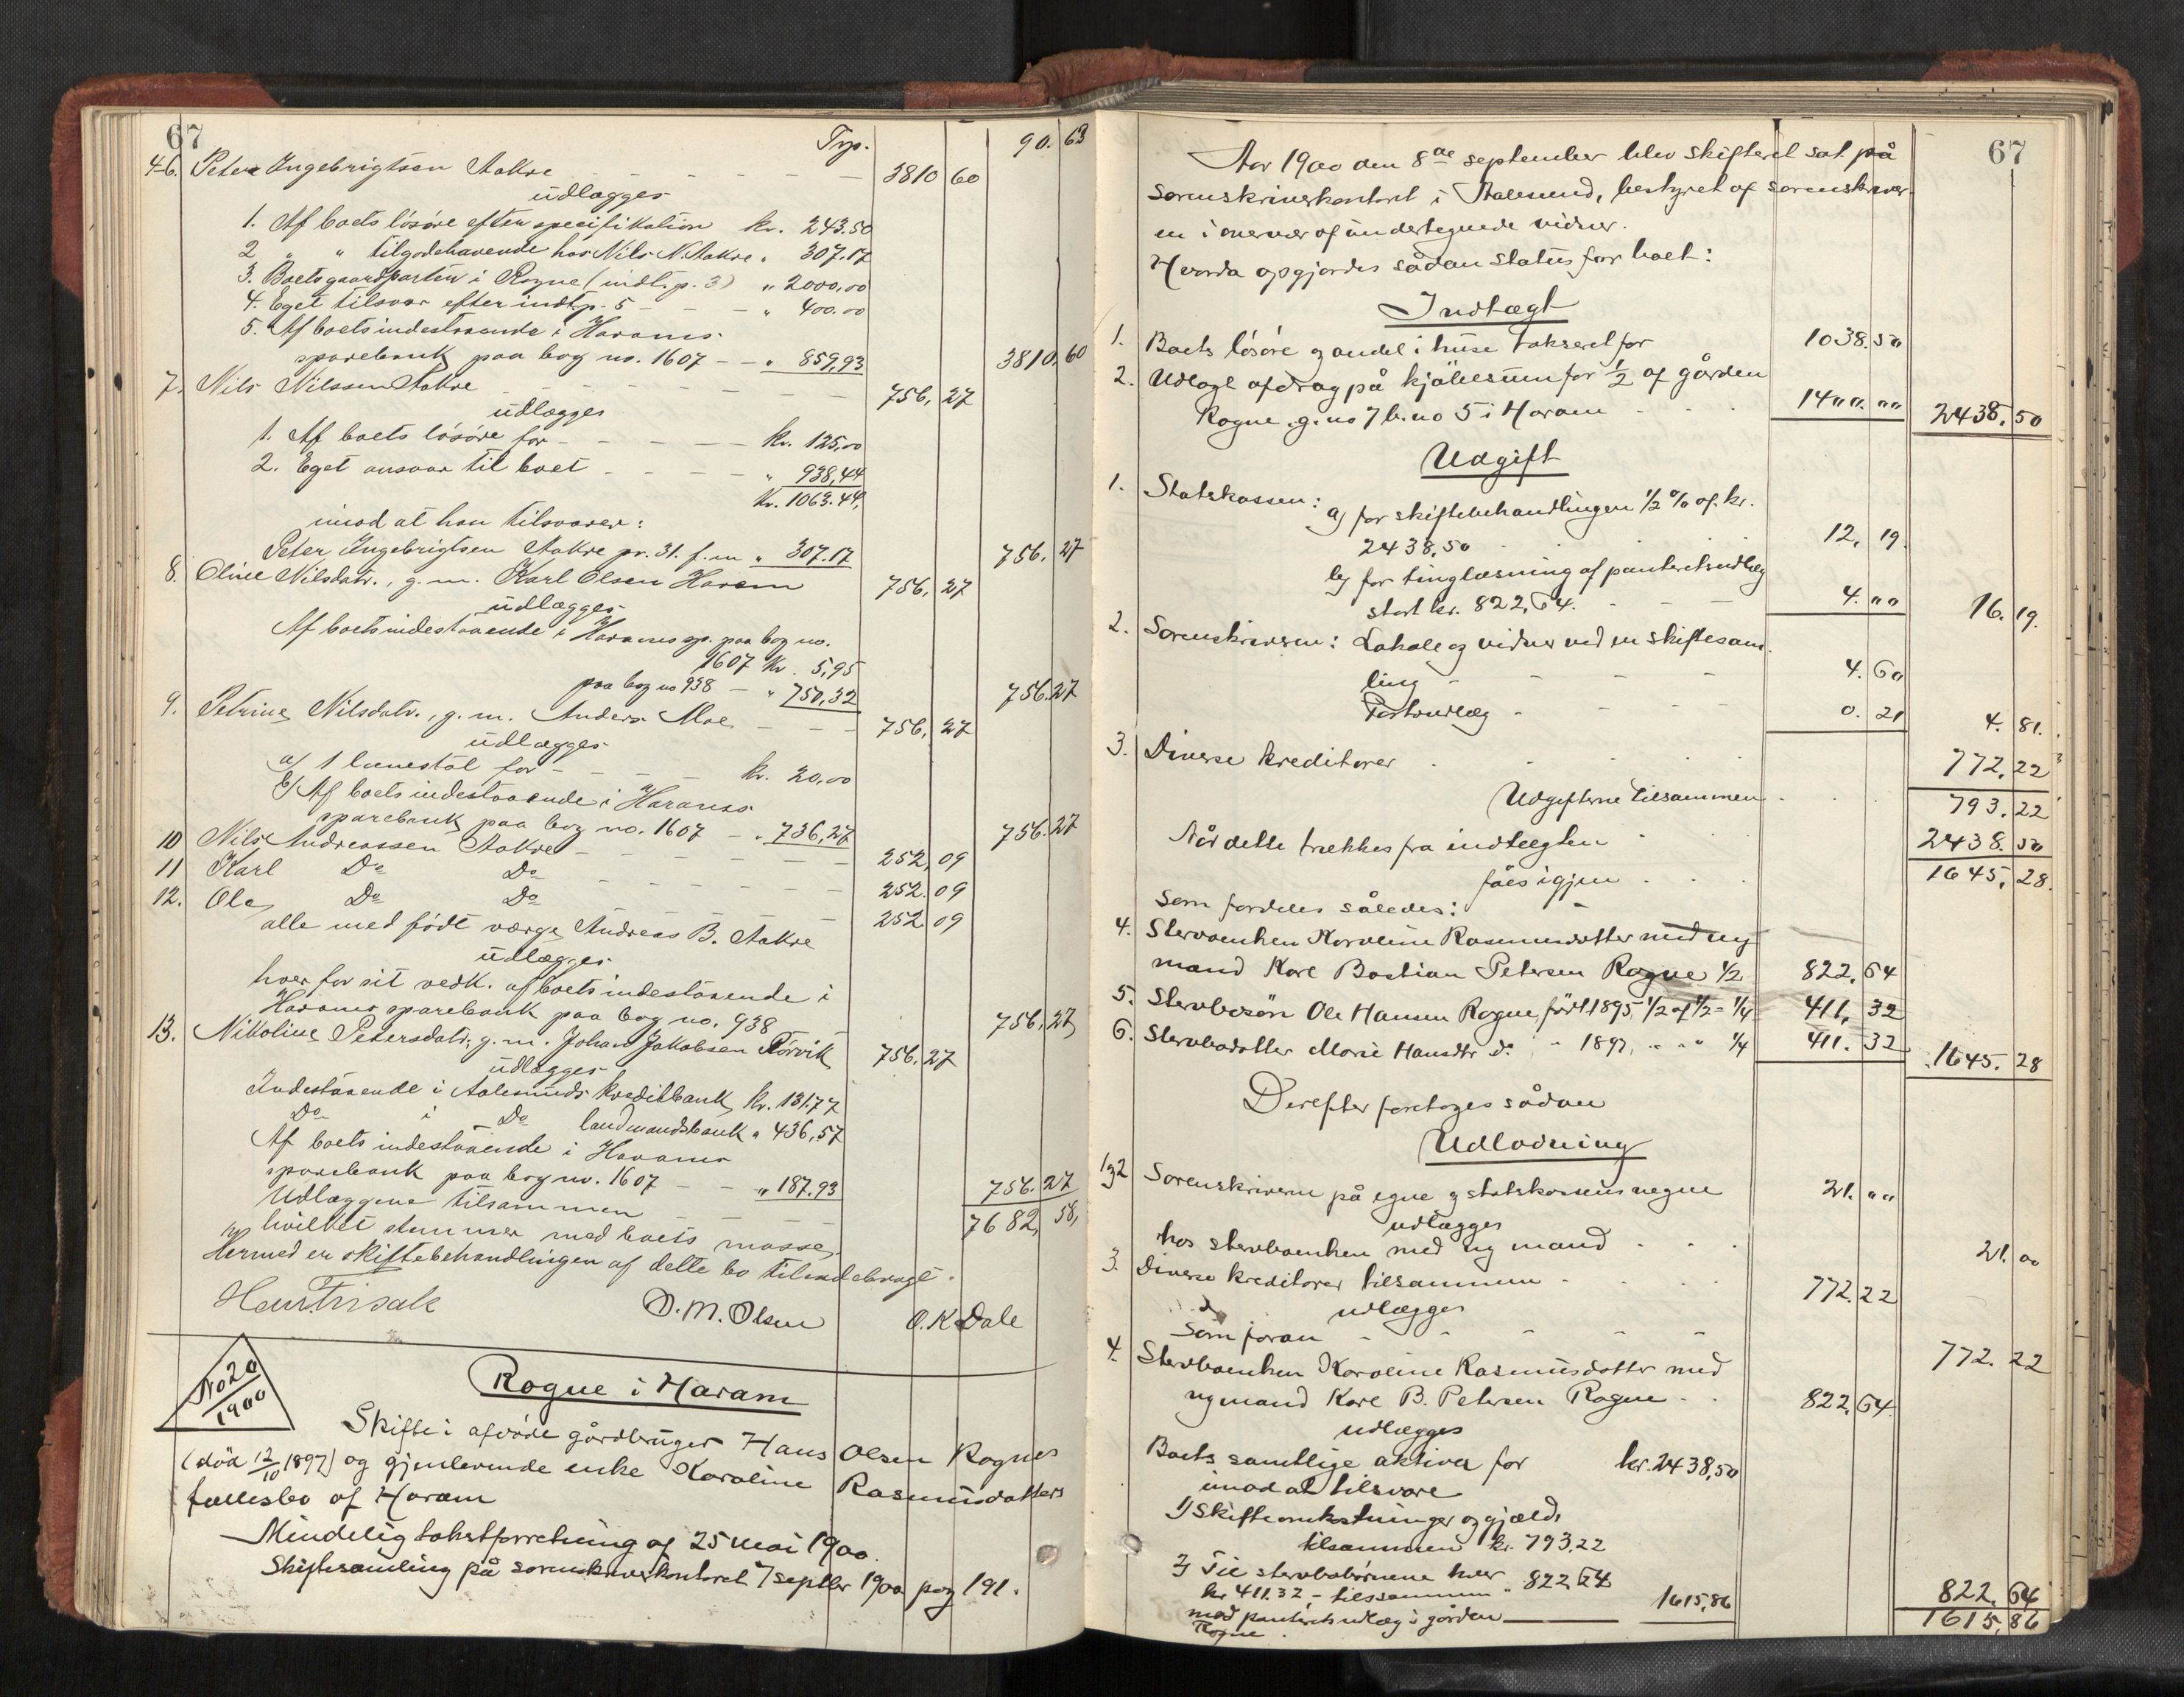 67
Trp. 90. 63
4-6. Peter Ingebrigtsen Aakre - - - - - 3810 60
udlægges
1. Af boets lösöre efter specifikation kr. 243.50
2 " " tilgodehavende hos Nils N. Aakre " 307.17
3. Boets gaardparten i Rogne (indt. p. 3) " 2000,00
4. Eget tilsvar efter indt. p. 5 - - - " 400.00
5. Af boets indestaaende i Harams
sparebank paa bog no. 1607 - - " 859,93 3810,60
7. Nils Nilssen Aakre - - - - - 756, 27
udlægges
1. Af boets lösöre for - - - - - kr. 125,00
2. Eget ansvar til boet - - - - " 938,44
Kr. 1063.44,
imod at han tilsvarer:
Peter Ingebrigtsen Aakre pr. 31. f. m " 307.17 756. 27
8. Oline Nilsdatr., g. m. Karl Olsen Haram 756, 27
udlægges
Af boets indestaaende i Harams sp. paa bog no.
1607 Kr. 5,95
paa bog no 938 - " 750,32 756.27
9. Petrine Nilsdatr., g. m. Anders Moe - - - 756, 27
udlægges
a) 1 lænestol for - - - - kr. 20,00
b) Af boets indestaaende i Harams
sparebank paa bog no. 1607 - " 736,27 756.27
10 Nils Andreassen Aakre - - - - - 252,09
11 Karl Do Do - - - - - 252.09
12. Ole Do Do - - - - - 252 09
alle med födt værge Andreas B. Aakre
udlægges
hver for sit vedk. af boets indestående i
Harams sparebank paa bog no. 938 756,27
13. Nikoline Petersdatr. g. m. Johan Jakobsen Rörvik 756,27
udlægges
Indestående i Aalesunds kreditbank kr. 131.77
Do i Do landmandsbank " 436,57
Af boets indestaaende i Harams
sparebank paa bog no. 1607 - - " 187.93 756.27
Udlæggene tilsammen - - - - 7682, 58,
hvilket stemmer med boets masse.
Hermed er skiftebehandlingen af dette bo tilendebragt.
O. M. Olsen O. K. Dale
No 20
1900
Rogne i Haram
Skifte i afdöde gårdbruger Hans Olsen Rognes
(död 12/10 1897) og gjenlevende enke Karoline Rasmusdatters
fællesbo af Haram
Mindelig takstforretning af 25 mai 1900.
Skiftesamling på sorenskriverkontoret 7 septbr 1900 pag 191.
67
Aar 1900 den 8de september blev skifteret sat på
sorenskriverkontoret i Aalesund, bestyret af sorenskriver-
en i overvær af undertegnede vidner.
Hvorda opgjordes sådan status for boet:
Indtægt
1. Boets lösöre og andel i huse takseret for 1038.50
2. Udlagt afdrag på kjöbesum for 1/2 af gården
Rogne, g. no 7 b. no 5 i Haram - - - 1400.00 2438.50
Udgift
1. Statskassen: a) for skiftebehandlingen 1/2 % af kr.
2438,50 - - - 12, 19.
b) for tinglæsning af panteretsudlæg
stort kr. 822,64. - - - 4.00 16.19.
2. Sorenskriveren: Lokale og vidner ved en skiftesam-
ling - - - - - 4.60
Portoudlæg - - - - 0.21 4.81.
3. Diverse kreditorer - - - - - 772.22
Udgifterne tilsammen - - - 793.22
Når dette trækkes fra indtægten - - 2438.50
fåes igjen - - - 1645, 28.
som fordeles således:
4. Stervboenken Karoline Rasmusdatter med ny
mand Karl Bastian Petersen Rogne 1/2 822,64
5. Stervbosön Ole Hansen Rogne, född 1895, 1/2 af 1/2 = 1/4 411, 32
6. Stervbodatter Marie Hansdtr do. " 1897, " " " 1/4 411. 32 1645. 28
Derefter foretoges sådan
Udlodning
1 og 2 Sorenskriveren på egne og statskassens vegne 21.00
udlægges
hos stervboenken med ny mand - - - 21.00
3. Diverse kreditorer tilsammen - - - 772.22
udlægges
Som foran - - - - - 772.22
4. Stervboenken Karoline Rasmusdatter med
ny mand Karl B. Petersen Rogne - - 822,64.
udlægges
Boets samtlige aktiva for kr. 2438,50
imod at tilsvare
1) Skifteomkostninger og gjæld,
tilsammen kr. 793.22
2) Til stervbobörnene hver
kr 411.32, - tilsammen " 822.64 1615,86 822.64
med panteretsudlæg i gården 1615,86
Rogne.